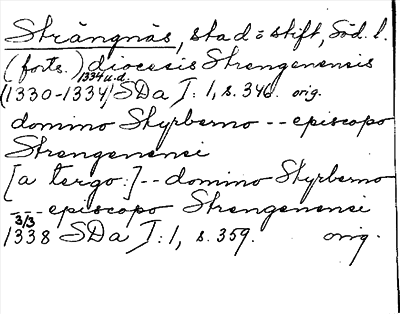 Strängnäs, stad o stift, Söd. l.
(forts.) diocesis Strengenensis
1334 u.d.
(1330-1334) SDa I: 1, s. 346. orig.
domino Styrberno -- episcopo
Strengenensi
[a tergo:] -- domino Styrberno
-- episcopo Strengenensi
3/3
1338 SDa I: 1, s. 359. orig.